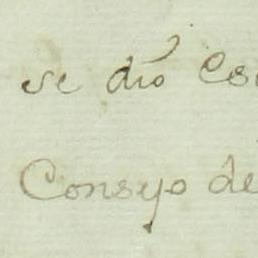 se dio
Consejo de